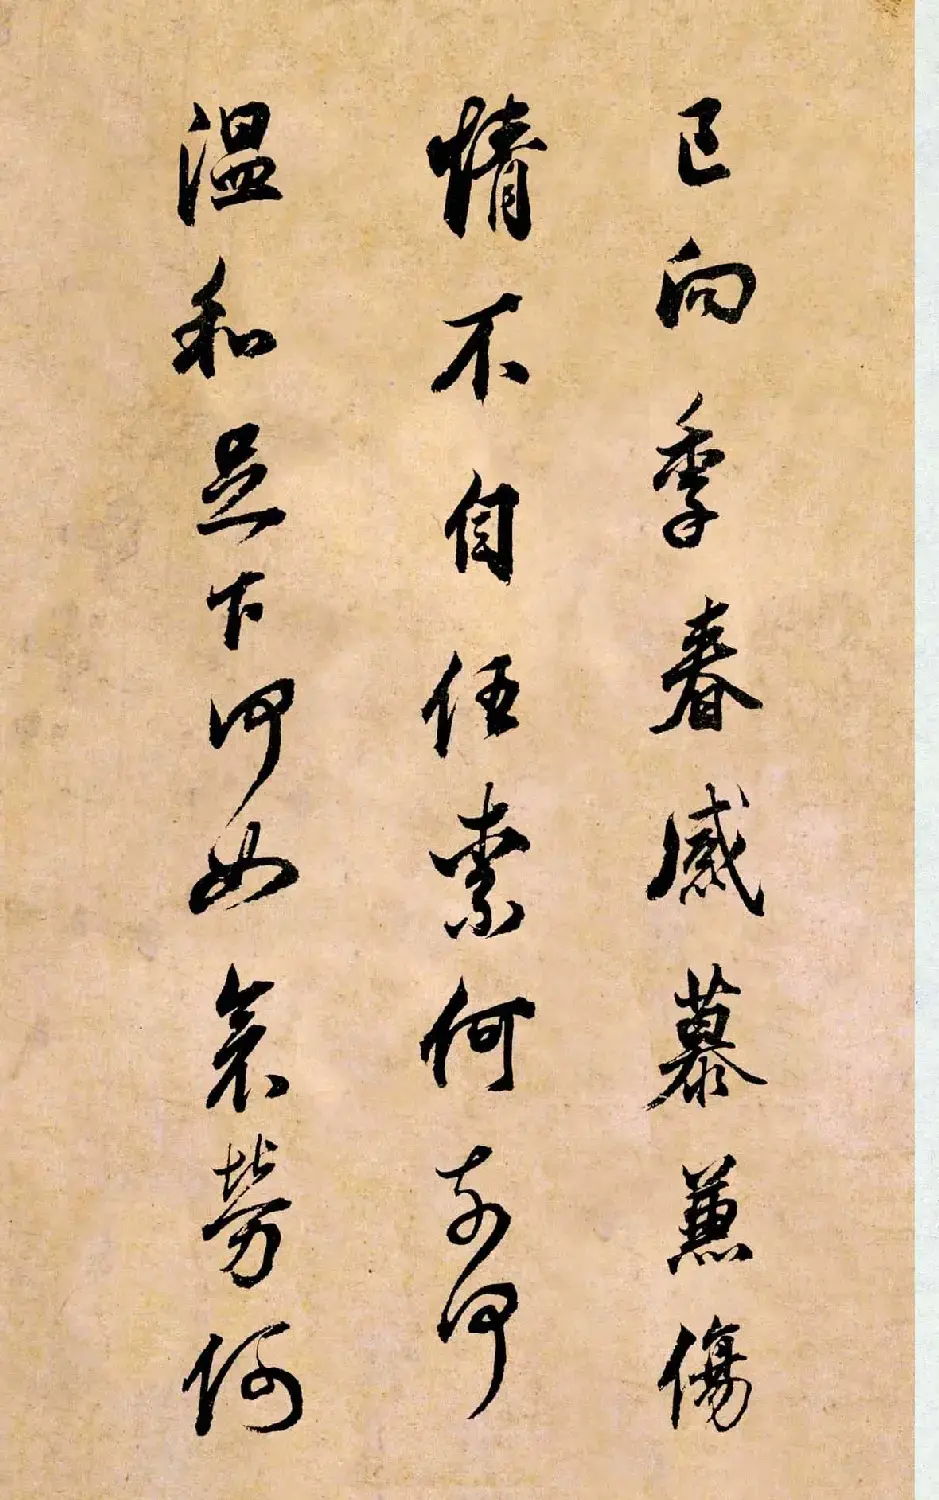 已向季春感慕兼傷
情不自任柰何奈何
温和足下何如哀勞何